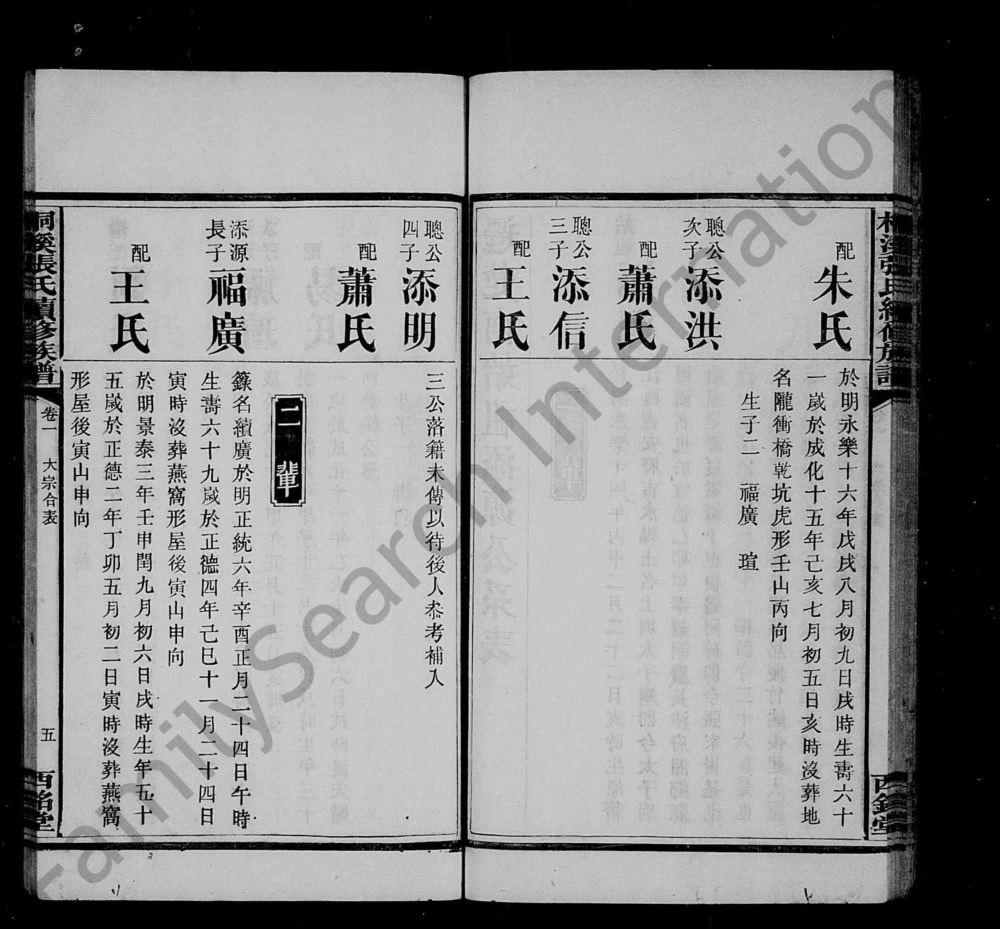 配
朱氏
於明永樂十六年戊戌八月初九日戌時生壽六十
一歲於成化十五年己亥七月初五日亥時沒葬地
名隴衝橋乾坑虎形壬山丙向
生子二 福廣 瑄
聰公次子
添洪
配
蕭氏
聰公三子
添信
配
王氏
聰公四子
添明
三公落籍未傳以待後人叅考補入
配
蕭氏
二輩
添源長子
福廣
籙名續廣於明正統六年辛酉正月二十四日午時
生壽六十九歲於正德四年己巳十一月二十四日
寅時沒葬燕窩形屋後寅山申向
配
王氏
於明景泰三年壬申閏九月初六日戌時生年五十
五歲於正德二年丁卯五月初二日寅時沒葬燕窩
形屋後寅山申向
桐溪張氏續修族譜
卷一
大宗合表
五
西銘堂
西銘堂
FamilySearch International